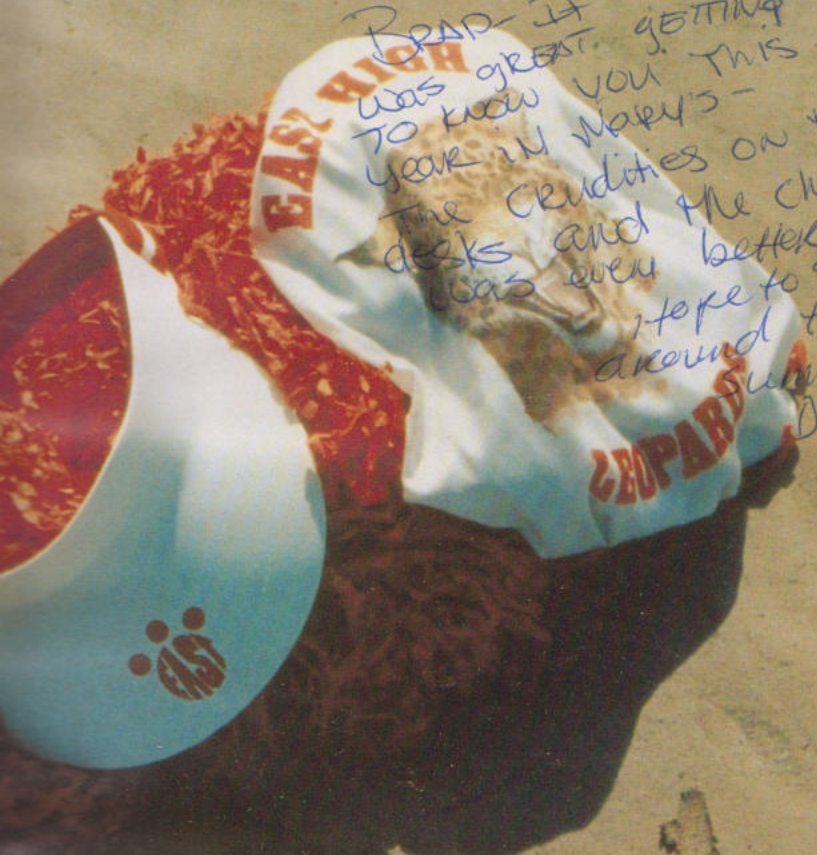 BRAD- It
was gREAT gETTING
TO KNOW YOU THIS
year iN Mary's-
The CRUdities ON
desks and the
was even better
Hope to
around
EAST HIGH
LEOPARDS
EAST